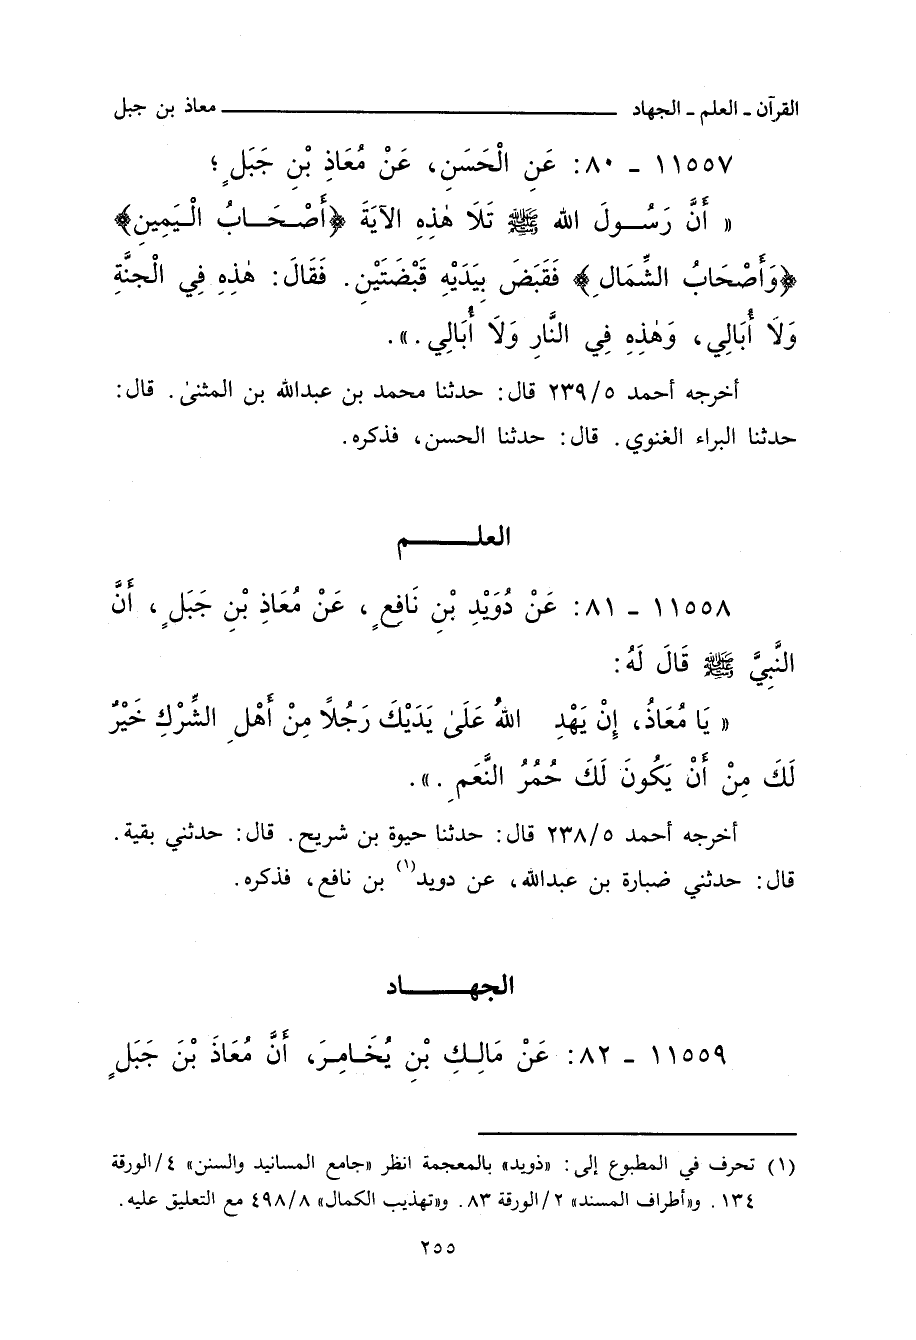 القرآن ـ العلم ـ الجهاد ــــــــــــــــ معاذ بن جبل
١١٥٥٧ ـ ٨٠: عَنِ الْحَسَنِ، عَنْ مُعَاذِ بْنِ جَبَلٍ؛
« أَنَّ رَسُولَ اللهِ ﷺ تَلَا هٰذِهِ الآيَةَ ﴿أَصْحَابُ الْيَمِينِ﴾
﴿وَأَصْحَابُ الشِّمَالِ﴾ فَقَبَضَ بِيَدَيْهِ قَبْضَتَيْنِ. فَقَالَ: هٰذِهِ فِي الْجَنَّةِ
وَلَا أُبَالِي، وَهٰذِهِ فِي النَّارِ وَلَا أُبَالِي.».
أخرجه أحمد ٢٣٩/٥ قال: حدثنا محمد بن عبدالله بن المثنىٰ. قال:
حدثنا البراء الغنوي. قال: حدثنا الحسن، فذكره.
العلـــــم
١١٥٥٨ ـ ٨١: عَنْ دُوَيْدِ بْنِ نَافِعٍ، عَنْ مُعَاذِ بْنِ جَبَلٍ، أَنَّ
النَّبِيَّ ﷺ قَالَ لَهُ:
« يَا مُعَاذُ، إِنْ يَهْدِ اللهُ عَلَىٰ يَدَيْكَ رَجُلاً مِنْ أَهْلِ الشِّرْكِ خَيْرٌ
لَكَ مِنْ أَنْ يَكُونَ لَكَ حُمُرُ النَّعَمِ.».
أخرجه أحمد ٢٣٨/٥ قال: حدثنا حيوة بن شريح. قال: حدثني بقية.
قال: حدثني ضبارة بن عبدالله، عن دويد(١) بن نافع، فذكره.
الجهـــــاد
١١٥٥٩ ـ ٨٢: عَنْ مَالِكِ بْنِ يُخَامِرَ، أَنَّ مُعَاذَ بْنَ جَبَلٍ
(١) تحرف في المطبوع إلى: «ذويد» بالمعجمة انظر «جامع المسانيد والسنن» ٤/الورقة
١٣٤. و«أطراف المسند» ٢/الورقة ٨٣. و«تهذيب الكمال» ٤٩٨/٨ مع التعليق عليه.
٢٥٥